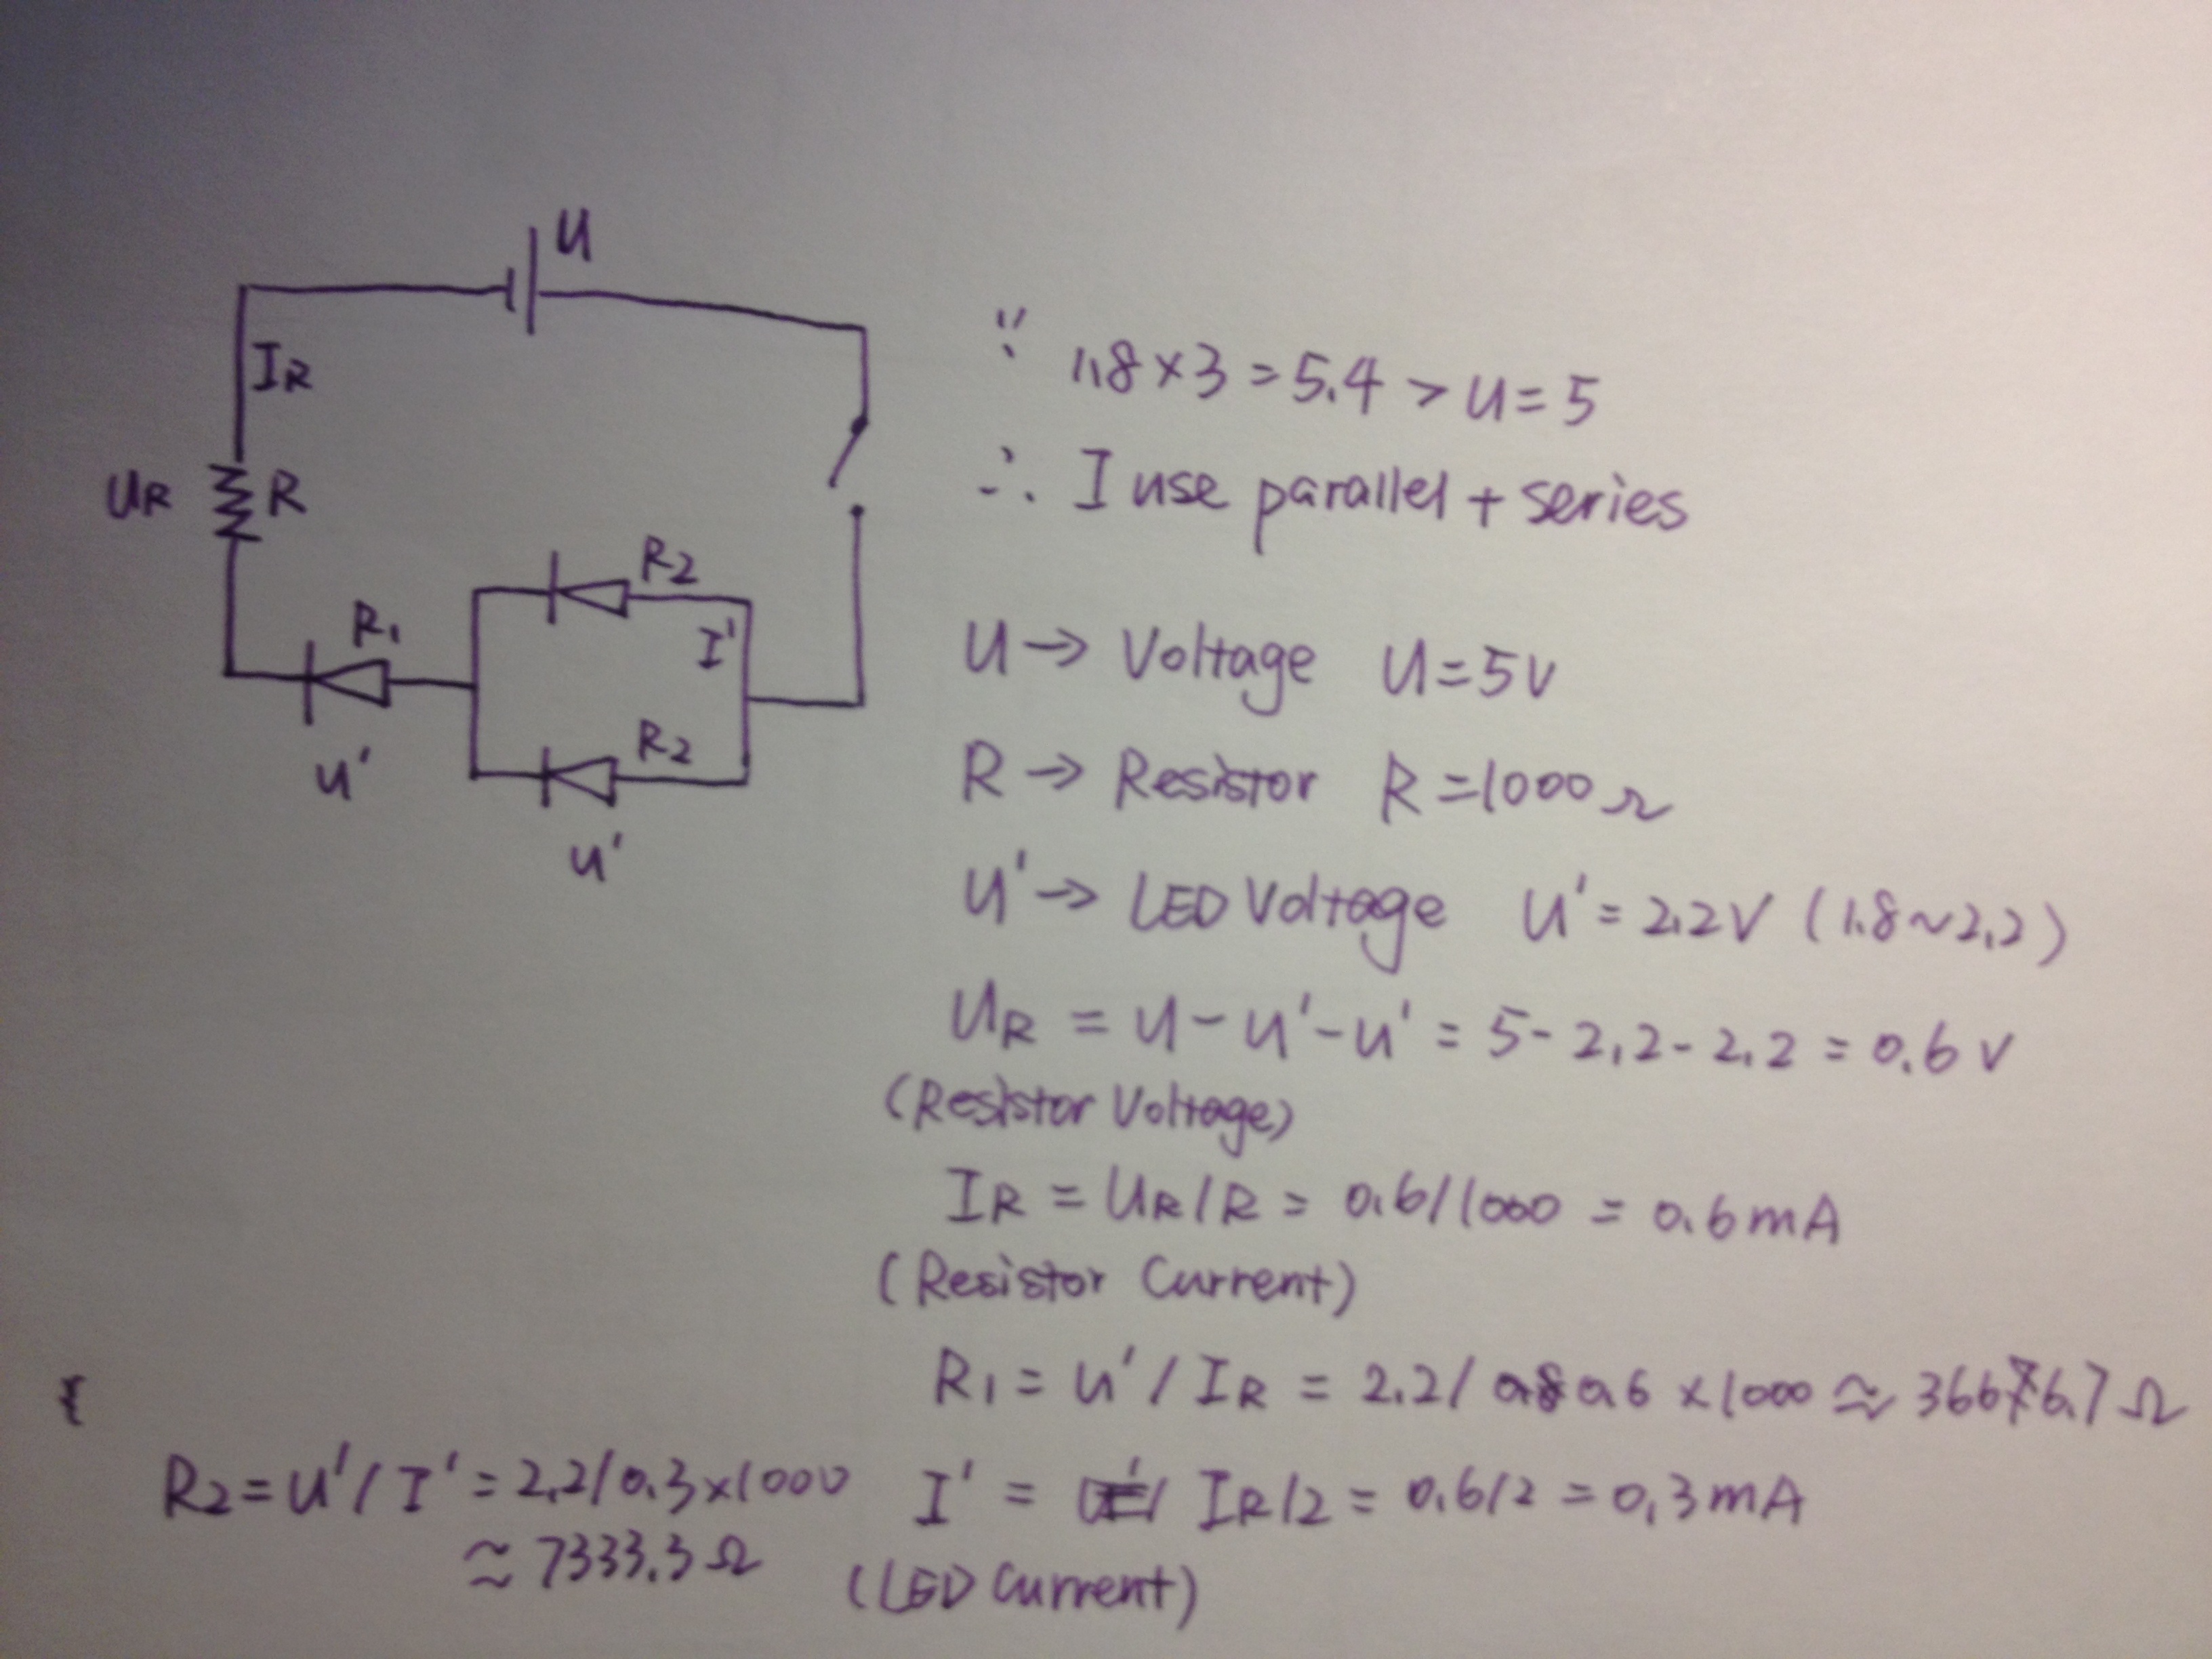 U
I_R
U_R R
R_2
R_1
I'
R_2
U'
U'
∵ 1.8 × 3 = 5.4 > U = 5
∴ I use parallel + series
U → Voltage U = 5V
R → Resistor R = 1000 Ω
U' → LED Voltage U' = 2.2V (1.8 ~ 2.2)
U_R = U - U' - U' = 5 - 2.2 - 2.2 = 0.6 V
(Resistor Voltage)
I_R = U_R / R = 0.6 / 1000 = 0.6 mA
(Resistor Current)
R_1 = U' / I_R = 2.2 / 0.6 × 1000 ≈ 3666.7 Ω
I' = I_R / 2 = 0.6 / 2 = 0.3 mA
(LED Current)
R_2 = U' / I' = 2.2 / 0.3 × 1000
≈ 7333.3 Ω